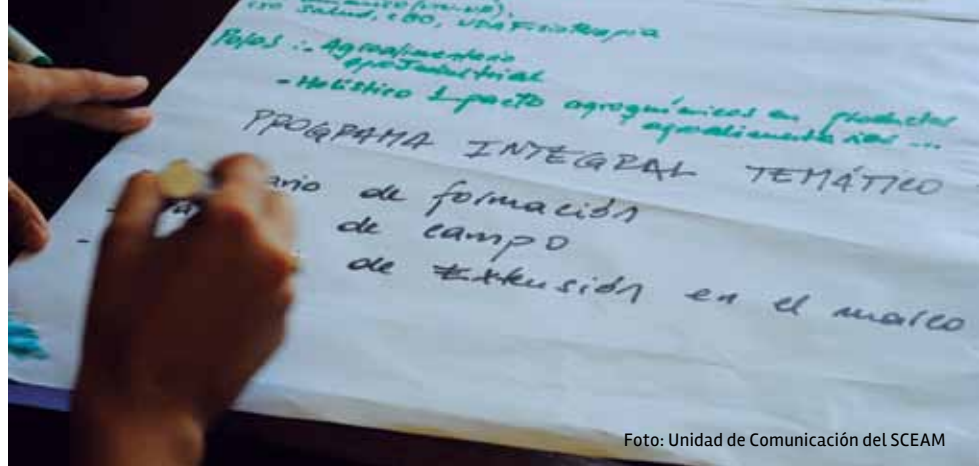 Salud, CBO, UDA Fisioterapia
Polos :. Agroalimentario
agroindustrial
- Holístico Impacto agroquímicos en productos
agroalimentarios ...
PROGRAMA INTEGRAL TEMÁTICO
ario de formación
de campo
- de Extensión en el marco
Foto: Unidad de Comunicación del SCEAM